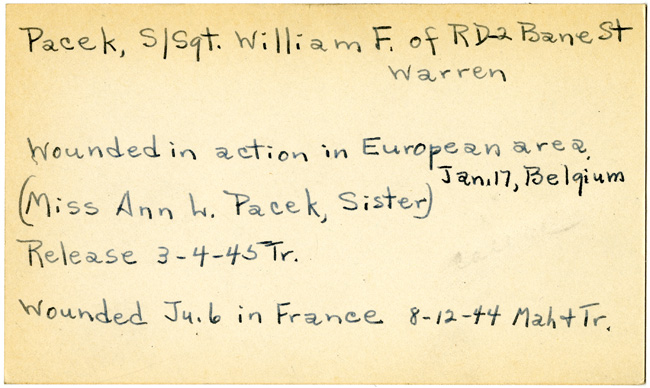 Pacek, S/Sgt. William F. of RD-2 Bane St
Warren
Wounded in action in European area.
Jan.17, Belgium
(Miss Ann L. Pacek, Sister)
Release 3-4-45 Tr.
Wounded Ju.6 in France 8-12-44 Mah + Tr.